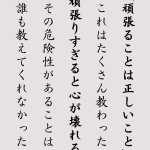 頑張ることは正しいこと
これはたくさん教わった
頑張りすぎると心が壊れる
その危険性があることは
誰も教えてくれなかった